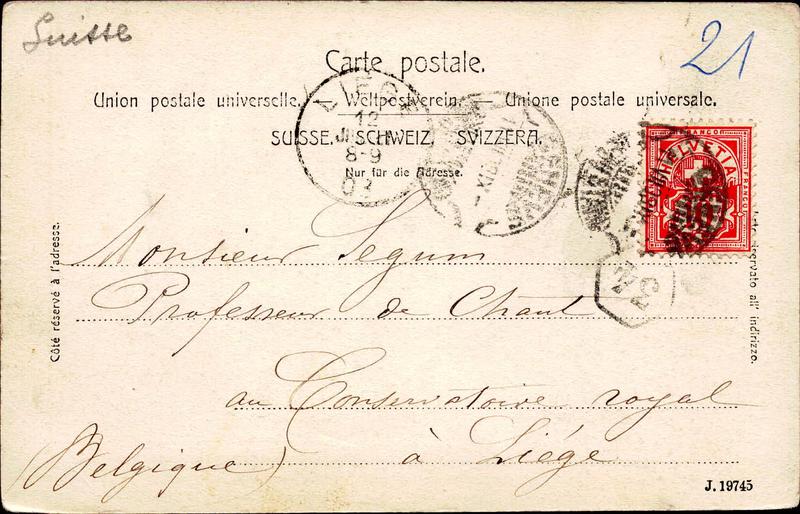 Suisse
21
Carte postale.
Union postale universelle. — Weltpostverein. — Unione postale universale.
SUISSE. SCHWEIZ. SVIZZERA.
Nur für die Adresse.
LIÈGE
12
8-9
03
FRANCO
HELVETIA
FRANCO
10
Côté réservé à l'adresse.
Monsieur Seguin
Professeur de Chant
au Conservatoire royal
à Liége
(Belgique)
all' indirizzo.
J. 19745